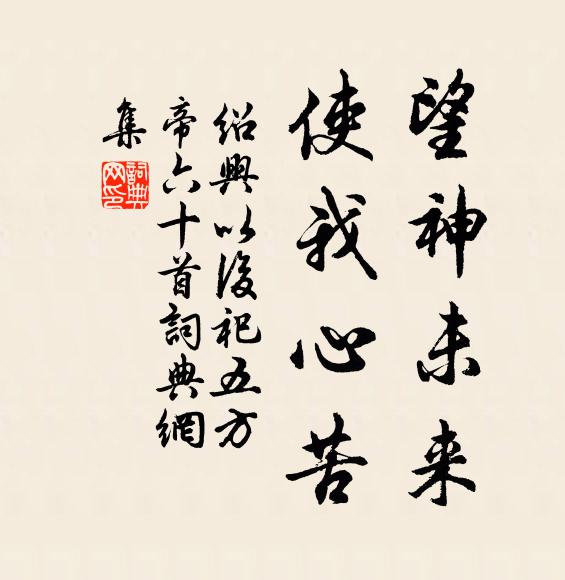 望神未来
使我心苦
绍興以後祀五方
帝六十首詞典網
集
詞典
网印